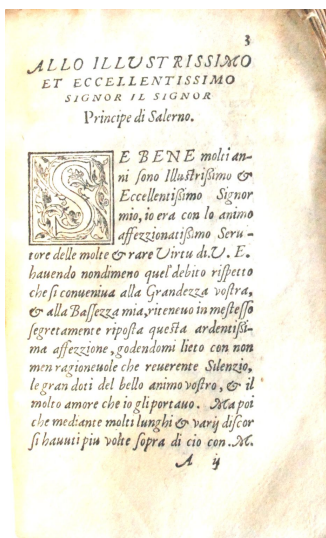 3
ALLO ILLUSTRISSIMO
ET ECCELLENTISSIMO
SIGNOR IL SIGNOR
Principe di Salerno.
SE BENE molti an-
ni sono Illustrißimo &
Eccellentißimo Signor
mio, io era con lo animo
affezzionatißimo Seru-
tore delle molte & rare Virtu di. V. E.
hauendo nondimeno quel debito rispetto
che si conueniua alla Grandezza vostra,
& alla Bassezza mia, riteneuo in me stesso
segretamente riposta questa ardentißi-
ma affezzione, godendomi lieto con non
men ragioneuole che reuerente Silenzio,
le gran doti del bello animo vostro, & il
molto amore che io gli portauo. Ma poi
che mediante molti lunghi & varij discor
si hauuti piu volte sopra di cio con. M.
A ij